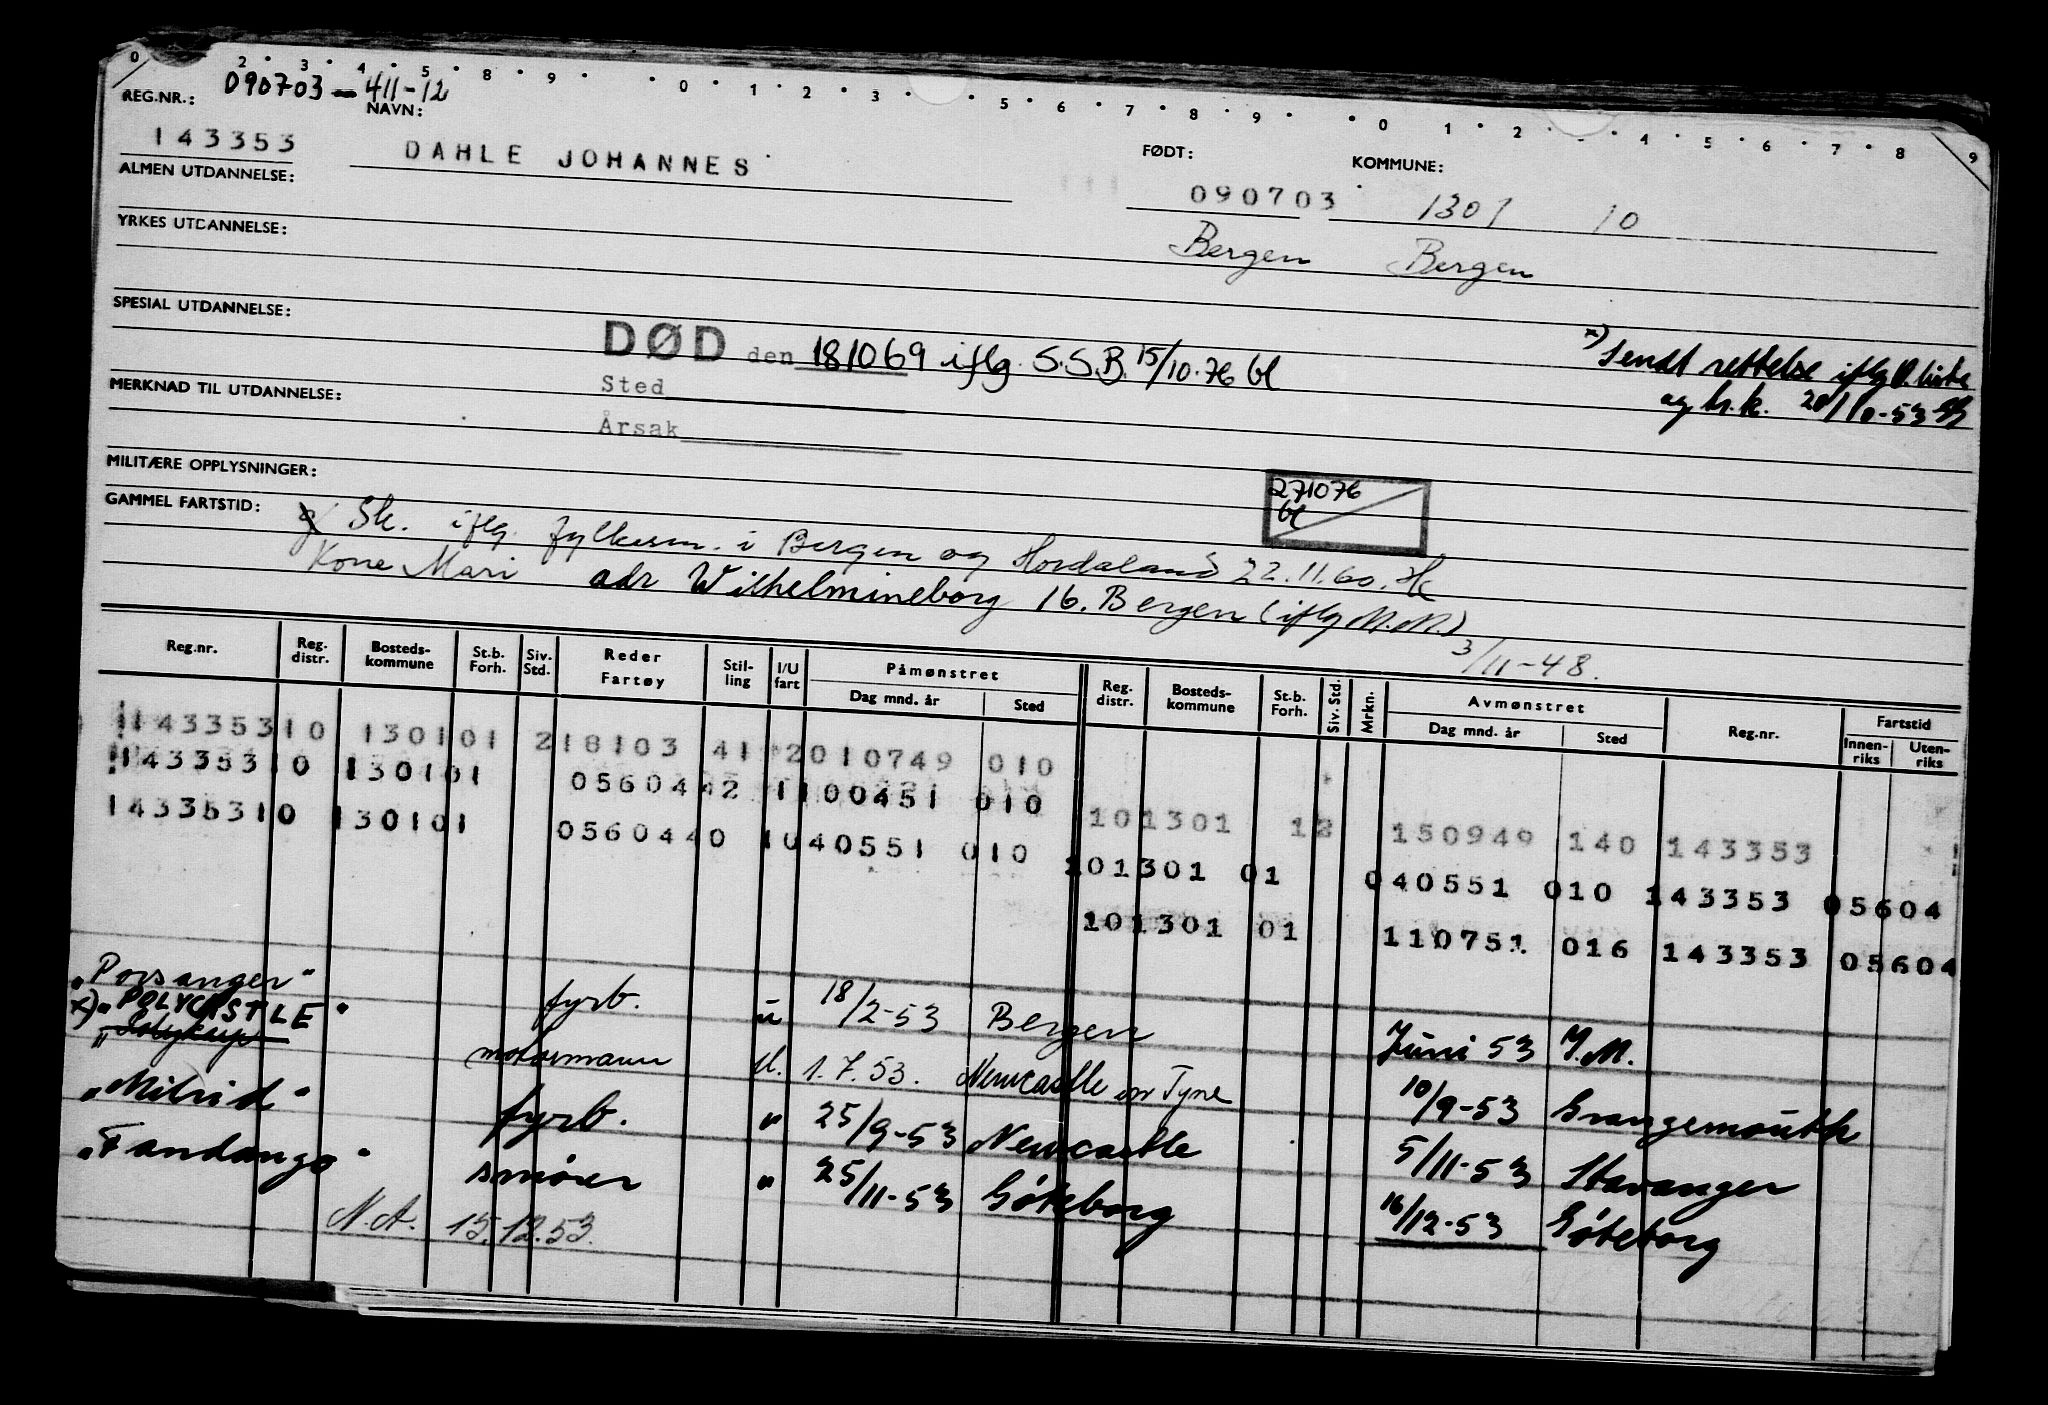 0 2 • 3 • 4 • 5 • 8 • 9 • 0 • 1 • 2 • 3 • • 5 • 6 • 7 • 8 • 9 • • 0 • 1 • 2 • 4 • 5 • 6 • 7 • 8 9
REG.NR.: 090703-411-12
NAVN:
143353 DAHLE JOHANNES
FØDT: KOMMUNE:
090703 1301 10
Bergen Bergen
ALMEN UTDANNELSE:
YRKES UTDANNELSE:
SPESIAL UTDANNELSE:
DØD den 181069 iflg. S.S.B. 15/10.76 bl
x) Sendt rettelse iflg. liste
og h.k. 20/10-53
Sted
MERKNAD TIL UTDANNELSE:
Årsak
MILITÆRE OPPLYSNINGER:
271076
bl
GAMMEL FARTSTID:
Sk. iflg. fylkesm. i Bergen og Hordaland 22.11.60.
Kone Mari adr Wilhelmineborg 16. Bergen (iflg M.M.)
3/11-48.
Reg.nr. Reg. distr. Bosteds-kommune St.b. Forh. Siv. Std. Reder Fartøy Stil-ling I/U fart Påmønstret Dag mnd. år Sted Reg. distr. Bosteds-kommune St.b. Forh. Siv. Std. Mrkn. Avmønstret Dag mnd. år Sted Reg.nr. Fartstid Innen-riks Uten-riks
143353 10 1301 01 2 18103 41 2 010749 010
101301 12 150949 140 143353
143353 10 1301 01 05604 42 1 100451 010
101301 01 040551 010 143353 05604
143353 10 1301 01 05604 40 1 040551 010
101301 01 110751 016 143353 05604
"Porsanger" fyrb. u 18/2-53 Bergen Juni 53
x) "POLYCASTLE" motormann U. 1.7.53. Newcastle on Tyne 10/9-53 Grangemouth
"Milrid" fyrb. " 25/9-53 Newcastle 5/11-53 Stavanger
"Fandango" smører " 25/11-53 Göteborg 16/12-53 Göteborg
N.A. 15.12.53.